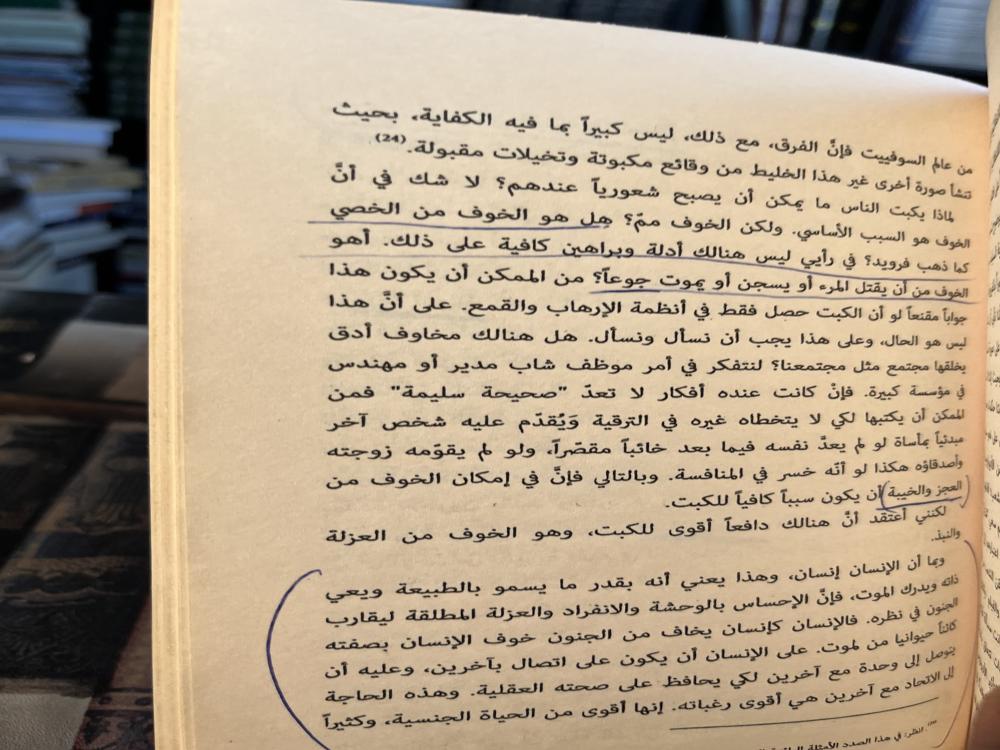 من عالم السوفييت فإنَّ الفرق، مع ذلك، ليس كبيراً بما فيه الكفاية، بحيث
تنشأ صورة أخرى غير هذا الخليط من وقائع مكبوتة وتخيلات مقبولة.(24)
لماذا يكبت الناس ما يمكن أن يصبح شعورياً عندهم؟ لا شك في أنَّ
الخوف هو السبب الأساسي. ولكن الخوف ممّ؟ هل هو الخوف من الخصي
كما ذهب فرويد؟ في رأيي ليس هنالك أدلة وبراهين كافية على ذلك. أهو
الخوف من أن يقتل المرء أو يسجن أو يموت جوعاً؟ من الممكن أن يكون هذا
جواباً مقنعاً لو أن الكبت حصل فقط في أنظمة الإرهاب والقمع. على أنَّ هذا
ليس هو الحال، وعلى هذا يجب أن نسأل ونسأل. هل هنالك مخاوف أدق
يخلقها مجتمع مثل مجتمعنا؟ لنتفكر في أمر موظف شاب مدير أو مهندس
في مؤسسة كبيرة. فإنْ كانت عنده أفكار لا تعدّ "صحيحة سليمة" فمن
الممكن أن يكبتها لكي لا يتخطاه غيره في الترقية وَيُقدّم عليه شخص آخر
مبدئياً بمأساة لو لم يعدَّ نفسه فيما بعد خائباً مقصّراً، ولو لم يقوّمه زوجته
وأصدقاؤه هكذا لو أنّه خسر في المنافسة. وبالتالي فإنَّ في إمكان الخوف من
العجز والخيبة أن يكون سبباً كافياً للكبت.
لكنني أعتقد أنَّ هنالك دافعاً أقوى للكبت، وهو الخوف من العزلة
والنبذ.
وبما أن الإنسان إنسان، وهذا يعني أنه بقدر ما يسمو بالطبيعة ويعي
ذاته ويدرك الموت، فإنَّ الإحساس بالوحشة والانفراد والعزلة المطلقة ليقارب
الجنون في نظره. فالإنسان كإنسان يخاف من الجنون خوف الإنسان بصفته
كائناً حيوانيا من لموت. على الإنسان أن يكون على اتصال بآخرين، وعليه أن
يتوصل إلى وحدة مع آخرين لكي يحافظ على صحته العقلية. وهذه الحاجة
إلى الاتحاد مع آخرين هي أقوى رغباته. إنها أقوى من الحياة الجنسية، وكثيراً
انظر: في هذا الصدد الأمثلة